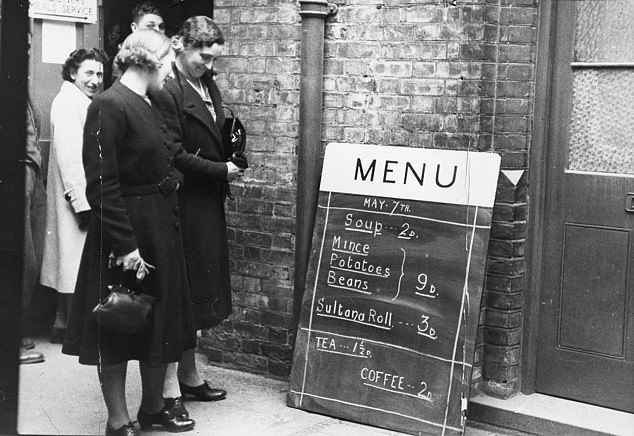 SERVICE
MENU
MAY. 7TH.
SOUP -- 2D.
MINCE
POTATOES
BEANS
9D.
SULTANA ROLL --- 3D.
TEA --- 1½D.
COFFEE -- 2D.